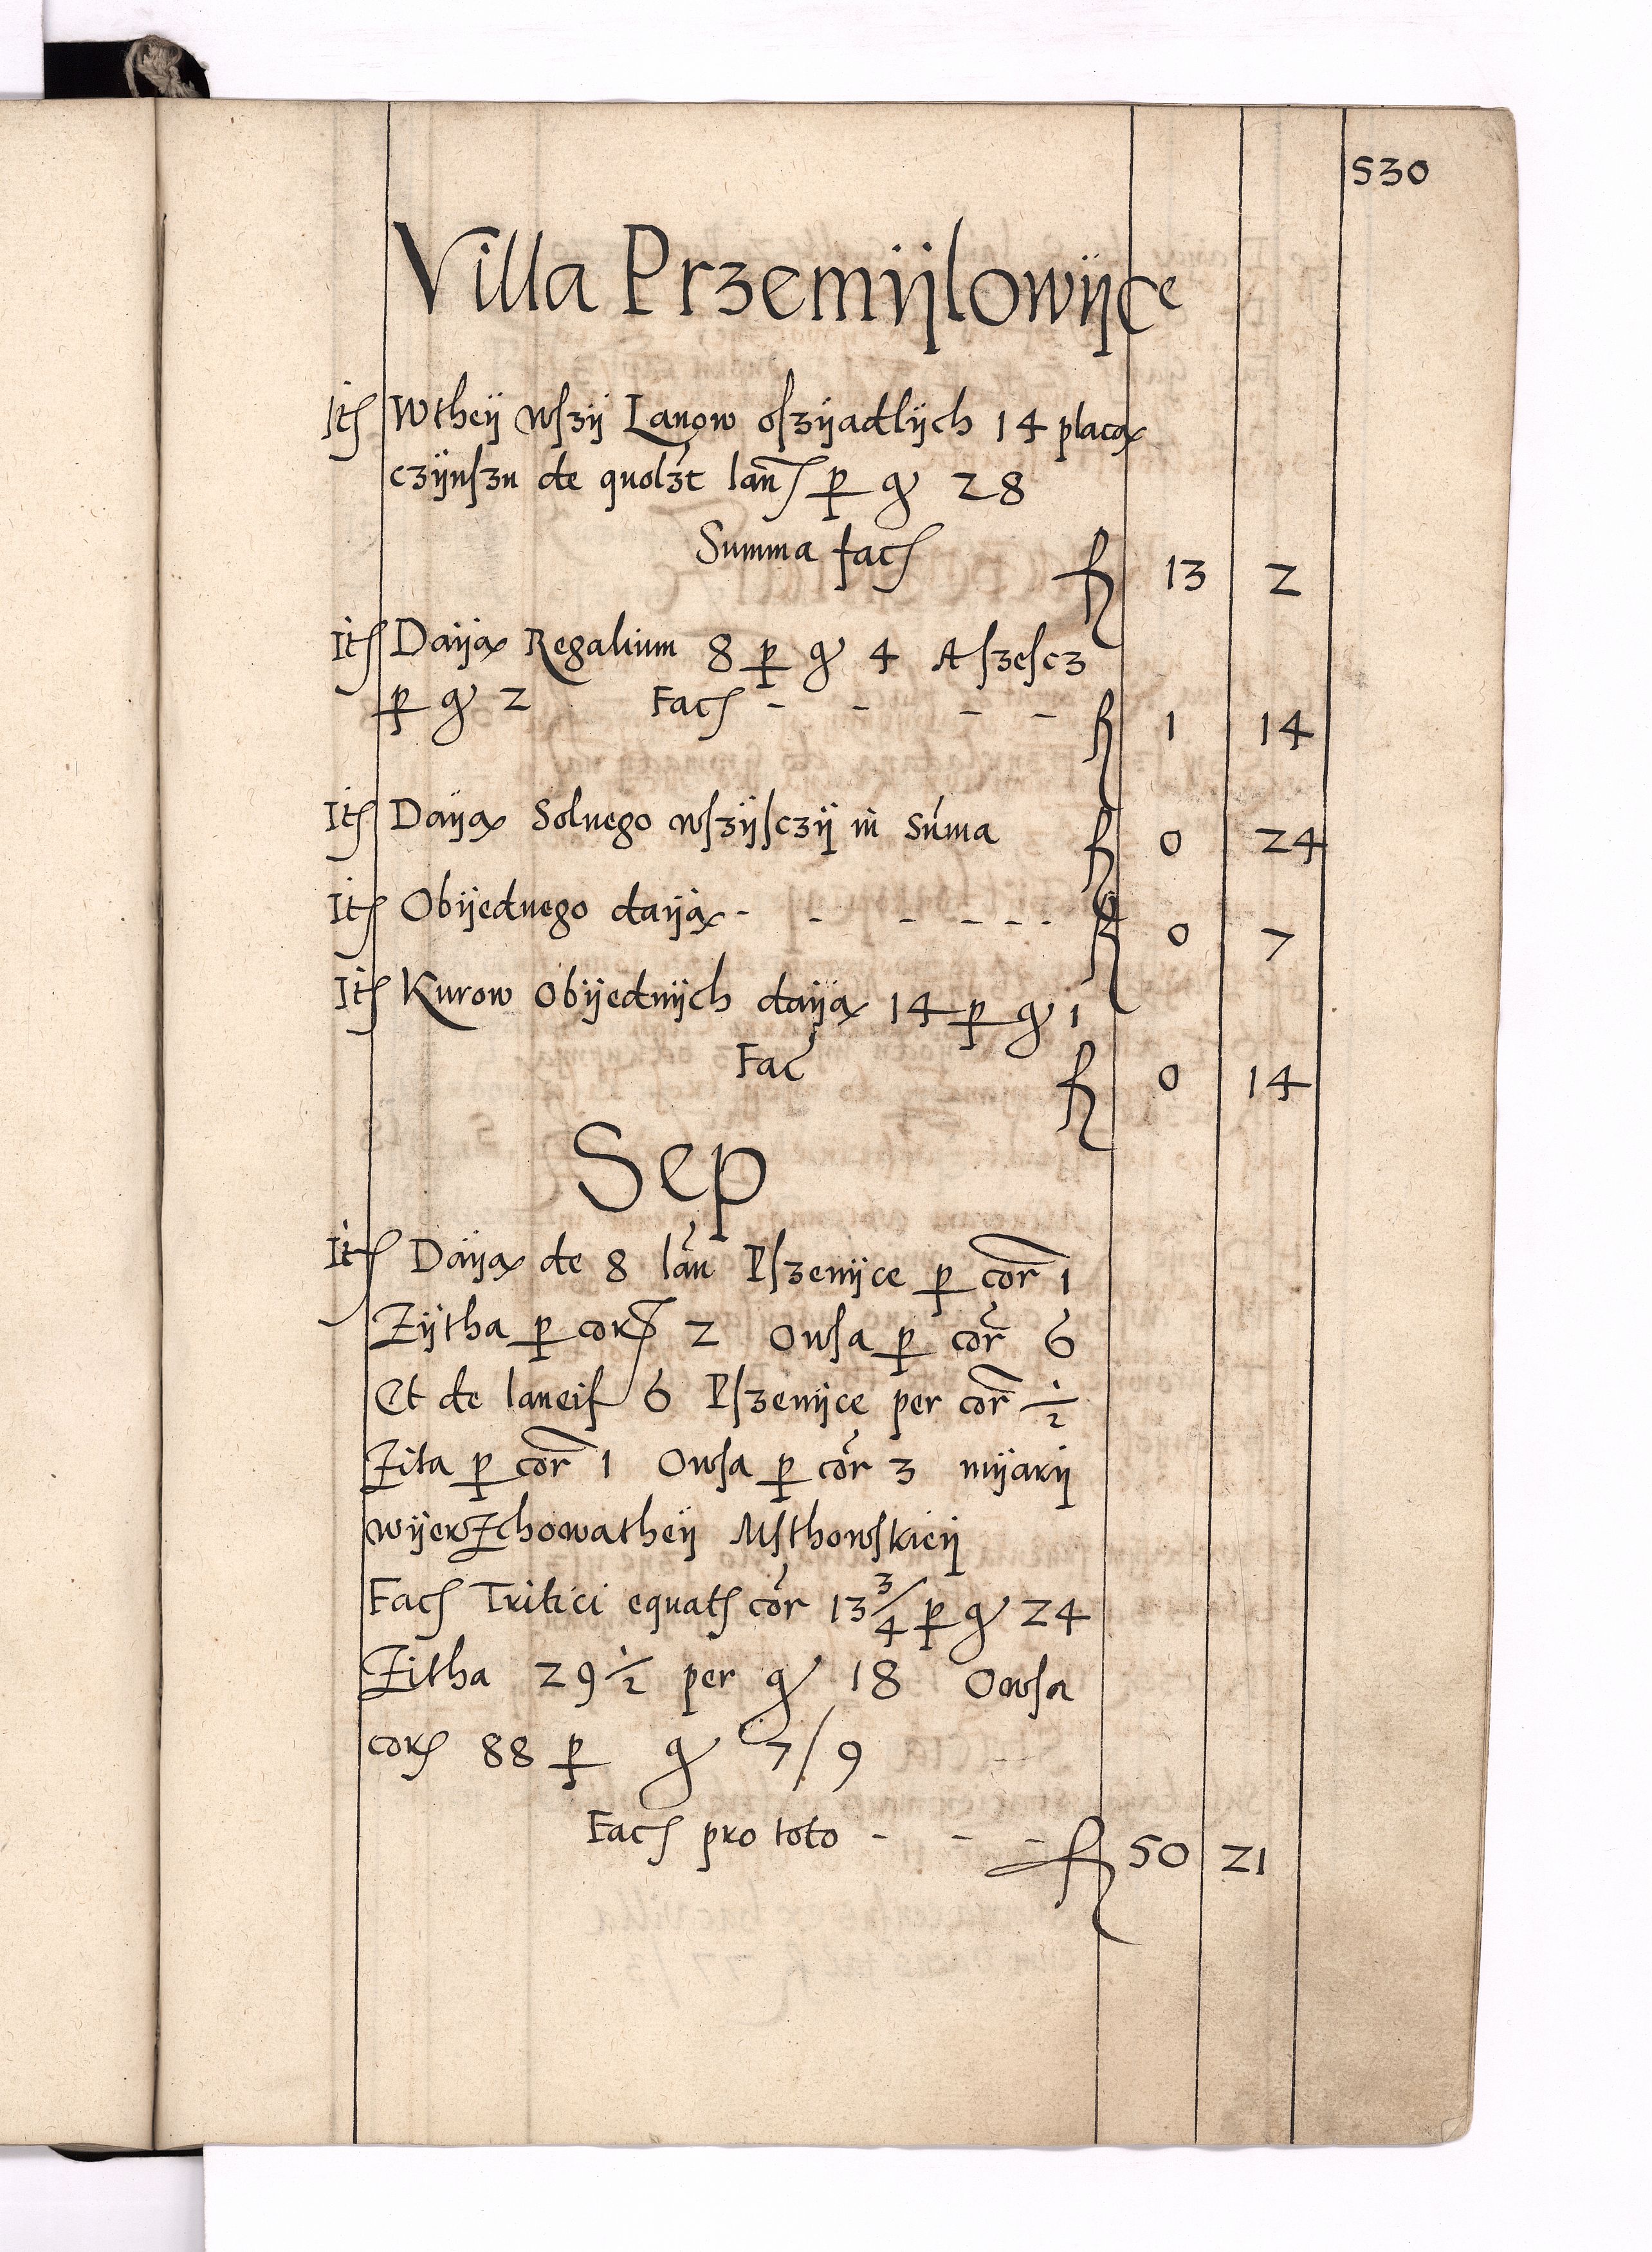 530
Villa Przemijlowijce
Itſ Wtheÿ wſzÿ Lanow oſzÿadlÿch 14 placą
czÿnſzu de quolꝫt lanſ ꝑ gr 28
Summa facſ fl 13 2
Itſ Daÿą Regalium 8 ꝑ gr 4 A ſzeſcz
ꝑ gr 2 Facſ - - - - fl 1 14
Itſ Daÿą Solnego wſzÿſczÿ in Sum̄a fl 0 24
Itſ Obÿednego daÿą - - - - - - fl 0 7
Itſ Kurow Obÿednÿch daÿą 14 ꝑ gr 1
Fac fl 0 14
Sep
Itſ Daÿą de 8 lan Pſzenÿce ꝑ cor 1
Zÿtha ꝑ corſ 2 Owſa ꝑ cor 6
Et de laneis 6 Pſzenÿce per cor ½
Zita ꝑ cor 1 Owſa ꝑ cor 3 mÿarÿ
wÿerzchowatheÿ Mſthowſkieÿ
Facſ Tritici equatſ cor 13¾ ꝑ gr 24
Zitha 29½ per gr 18 Owſa
corſ 88 ꝑ gr 7/9
Facſ pro toto - - - fl 50 21